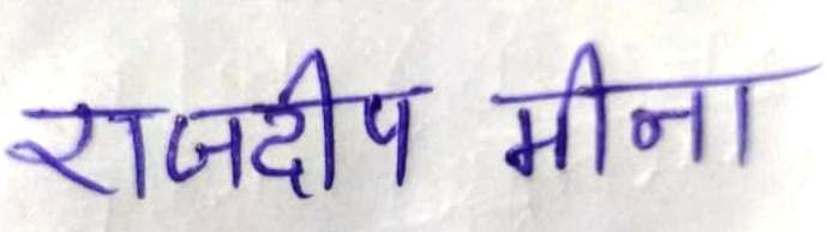 राजदीप मीना